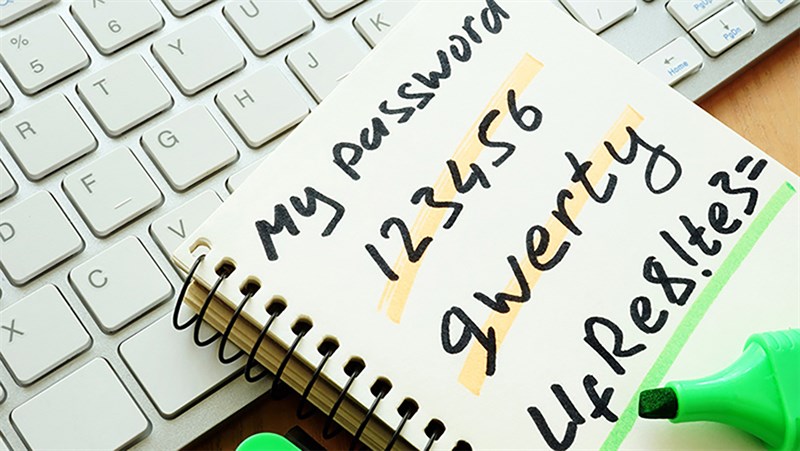 My password
123456
qwerty
UfRe8!te3=
%
5
T
Y
U
K
R
G
H
J
F
D
C
V
X
Home
PgUp
PgDn